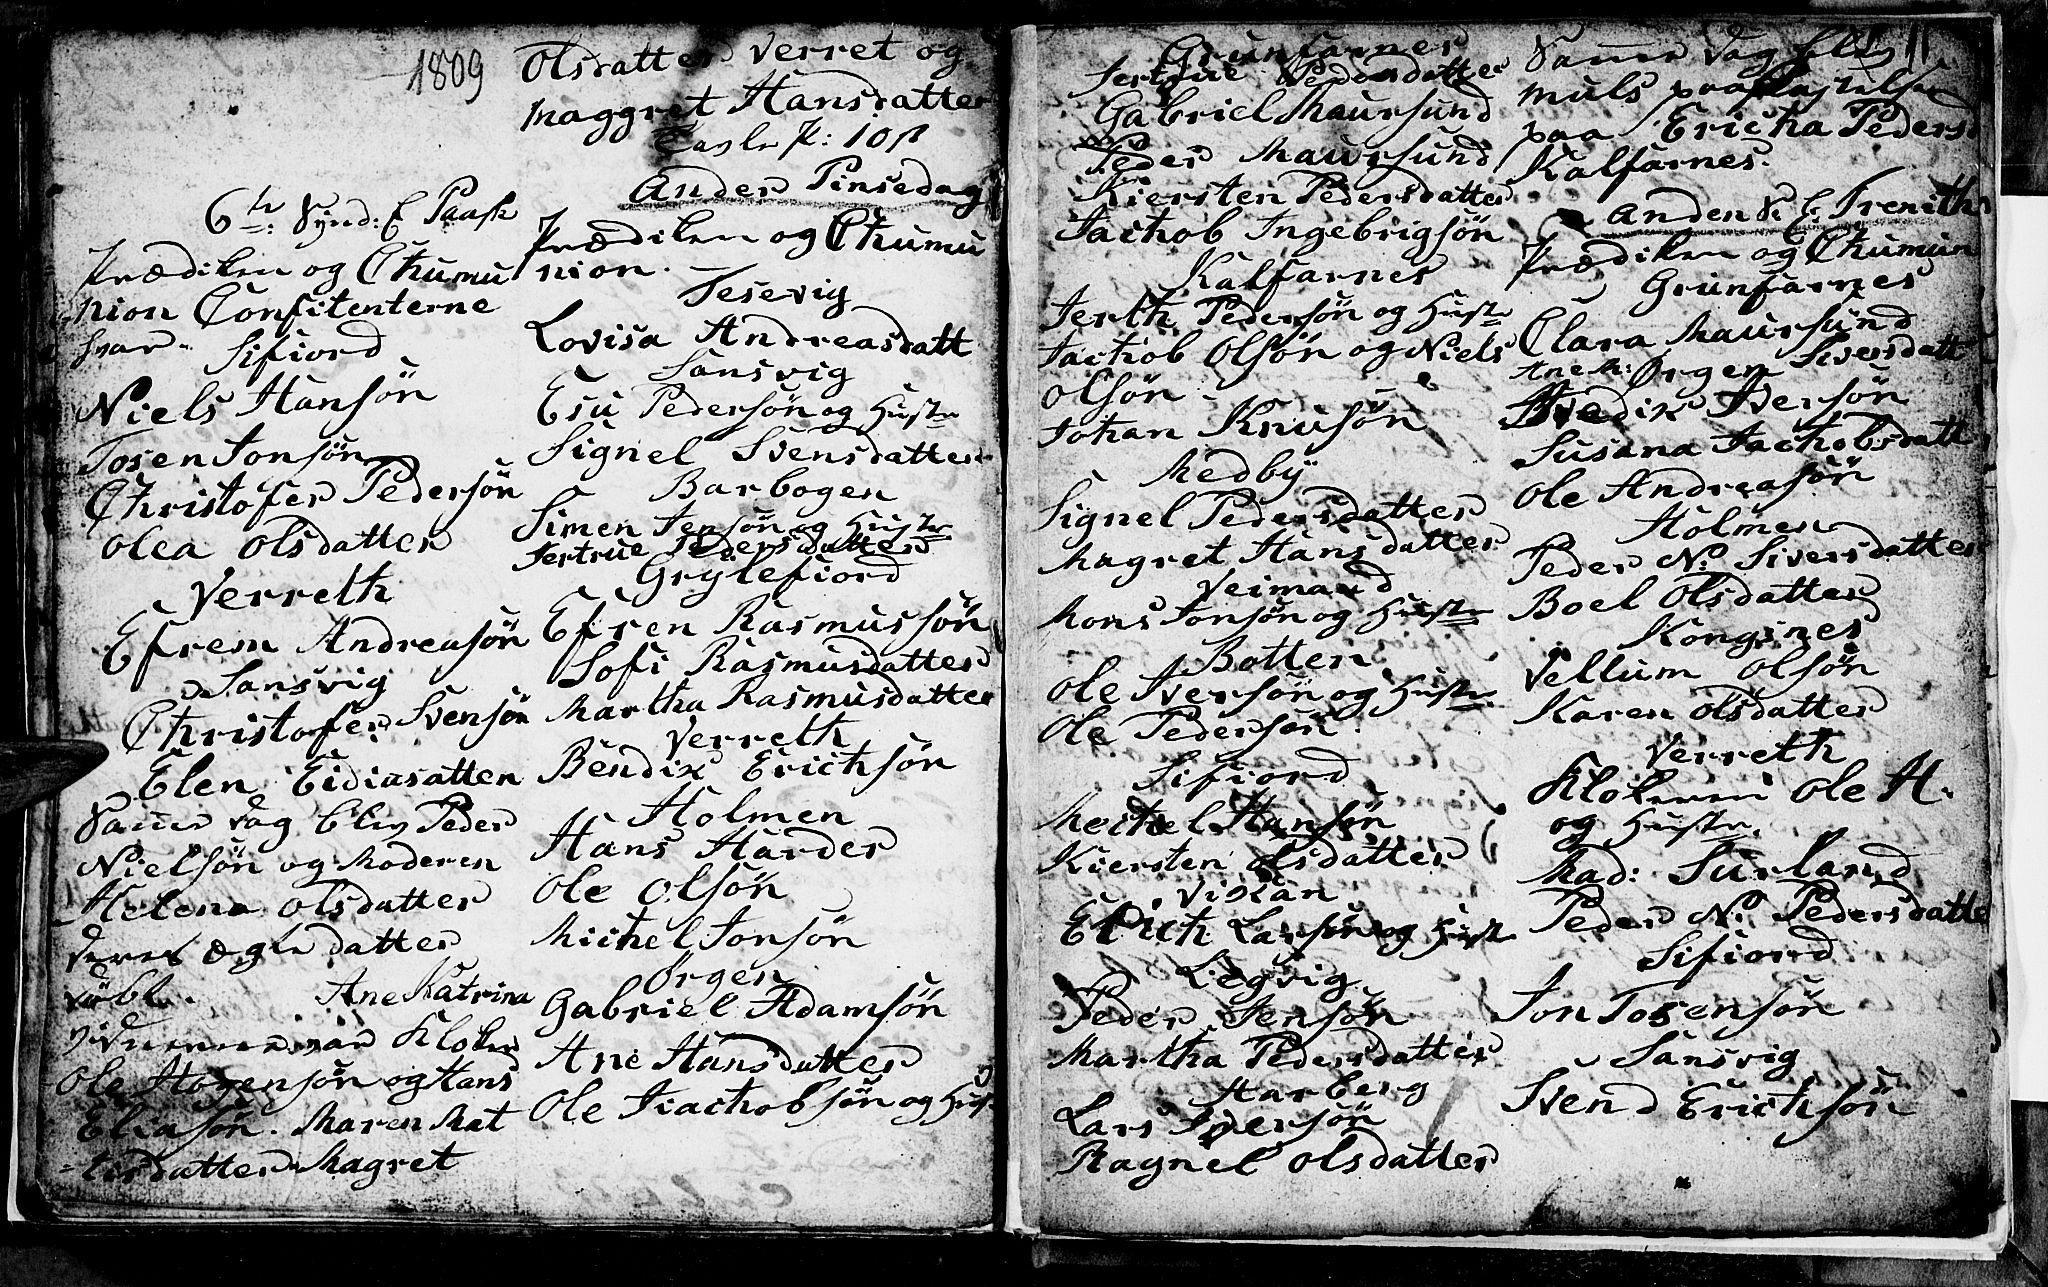 1809
6te Synd: E Paask
Prædiken og Chumu
nion Confitenterne
hvar
Sifiord
Niels Hansøn
Tosen Jonsøn
Christofer Pedersøn
Olea Olsdatter
Verreth
Efrem Andreasøn
Sansvig
Christofer Svensøn
Elen Eidiasatten
Samme dag blev Peder
Nielsøn og Moderen
Helena Olsdatter
deres ægte datter
døbt. Ane Katrina
var Kloker
Ole Hogensøn og Hans
Eliasøn. Maren Mat
tisdatter Magret
Olsdatter Verret og
Maggret Hansdatter
10 ß
Anden Pinsedag
Prædiken og Chumu
nion.
Tesevig
Lovisa Andreasdatt
Sansvig
Esu Pedersøn og Hustr
Signel Svensdatter
Barbogen
Simen Jensøn og Hustr
Jertrue Pedersdatter
Grylefiord
Efren Rasmussøn
Sofi Rasmusdatter
Martha Rasmusdatter
Verreth
Bendix Erichsøn
Holmen
Hans Harder
Ole Olsøn
Michel Jonsøn
Ørgen
Gabriel Adamsøn
Ane Hansdatter
Ole Jachobsøn og Hust
Grunfarnes
Jertrue Pedersdatter
Gabriel Maursund
Peder Maursund
Kiersten Pedersdatter
Jachob Ingebrigsøn
Kalfarnes
Jerth Pedersøn og Hustr
Jachob Olsøn og Niels
Olsøn
Johan Knusøn
Medby
Signel Pedersdatter
Magret Hansdatter
Veimand
Mons Jonsøn og Hustr
Botten
Ole Iversøn og Hustr
Ole Pedersøn
Sifiord
Mechel Hansøn
Kiersten Olsdatter
Viskan
Erich Larsøn og Hustr
Legvig
Peder Jensøn
Martha Pedersdatter
Harberg
Lars Iversøn
Ragnel Olsdatter
11
Samme dag blev
paa Ericha Pedersd
Kalfarnes.
Anden S. E. Trenith
Prædiken og Chumun
Grunfarnes
Clara Maursund
Ane M: Ørgem Siversdatt
Bredix Iversøn
Susana Jachobsdatt
Ole Andreasøn
Holmen
Peder N: Siversdatter
Boel Olsdatter
Kongsnes
Vellum Olsøn
Karen Olsdatter
Verreth
Klokeren Ole H.
og Hustr.
Mad: Surland
Peder N: Pedersdatte
Sifiord
Jon Tosensøn
Sansvig
Svend Erichsøn